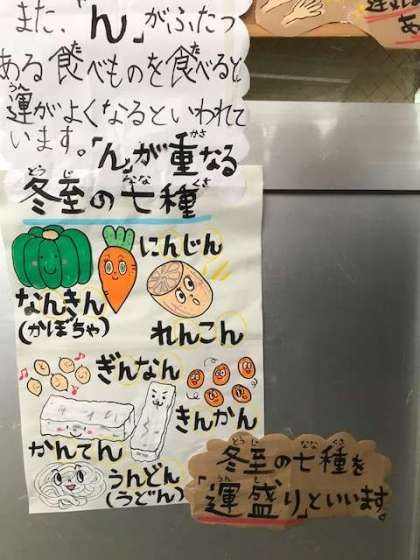 また、「ん」がふたつ
ある食べものを食べると
運がよくなるといわれて
います。「ん」が重なる
冬至の七種
にんじん
なんきん
(かぼちゃ)
れんこん
ぎんなん
きんかん
かんてん
うんどん
(うどん)
冬至の七種を
「運盛り」といいます。